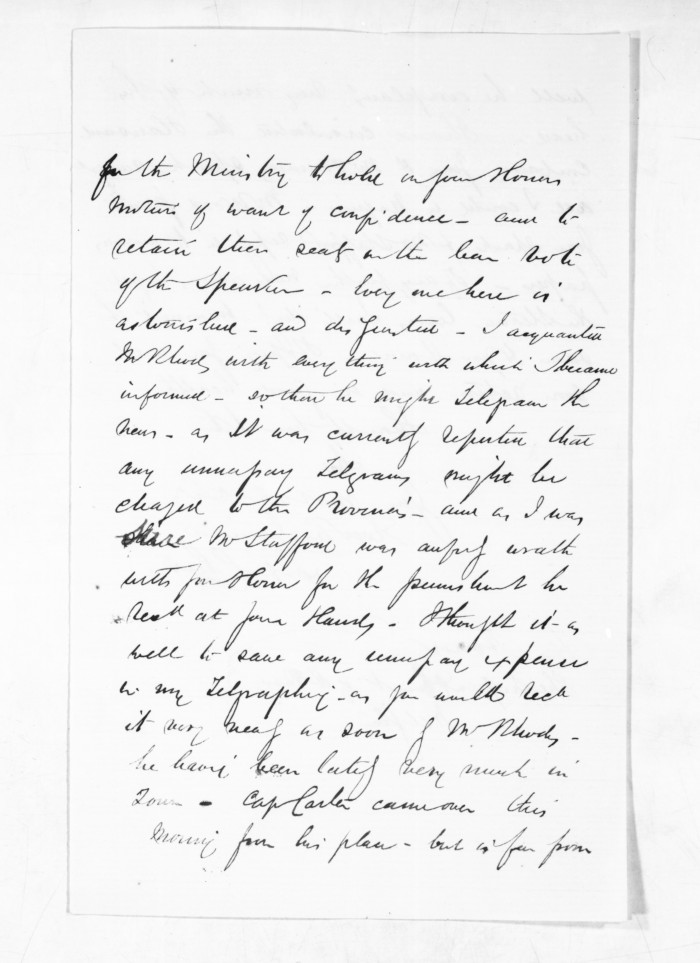 for the Ministry to hold on your Honors
motion of want of confidence - and to
retain their seats on the bare vote
of the Speaker - Every one here is
astonished - and disgusted - I acquainted
Mr Rhodes with everything with which I became
informed - so that he might Telegram the
news - as It was currently reported that
any unnecessary Telegrams might be
charged to the Province - and as I was
sure Mr Stafford was awfully wrath
with your Honor for the punishment he
recd at your Hands - I thought it as
well to save any unnecessary expense
in my Telegraphing - as you would recd
it very nearly as soon of Mr Rhodes -
he having been lately very much in
Town - Cap Carter came over this
Morning from his place - but is far from